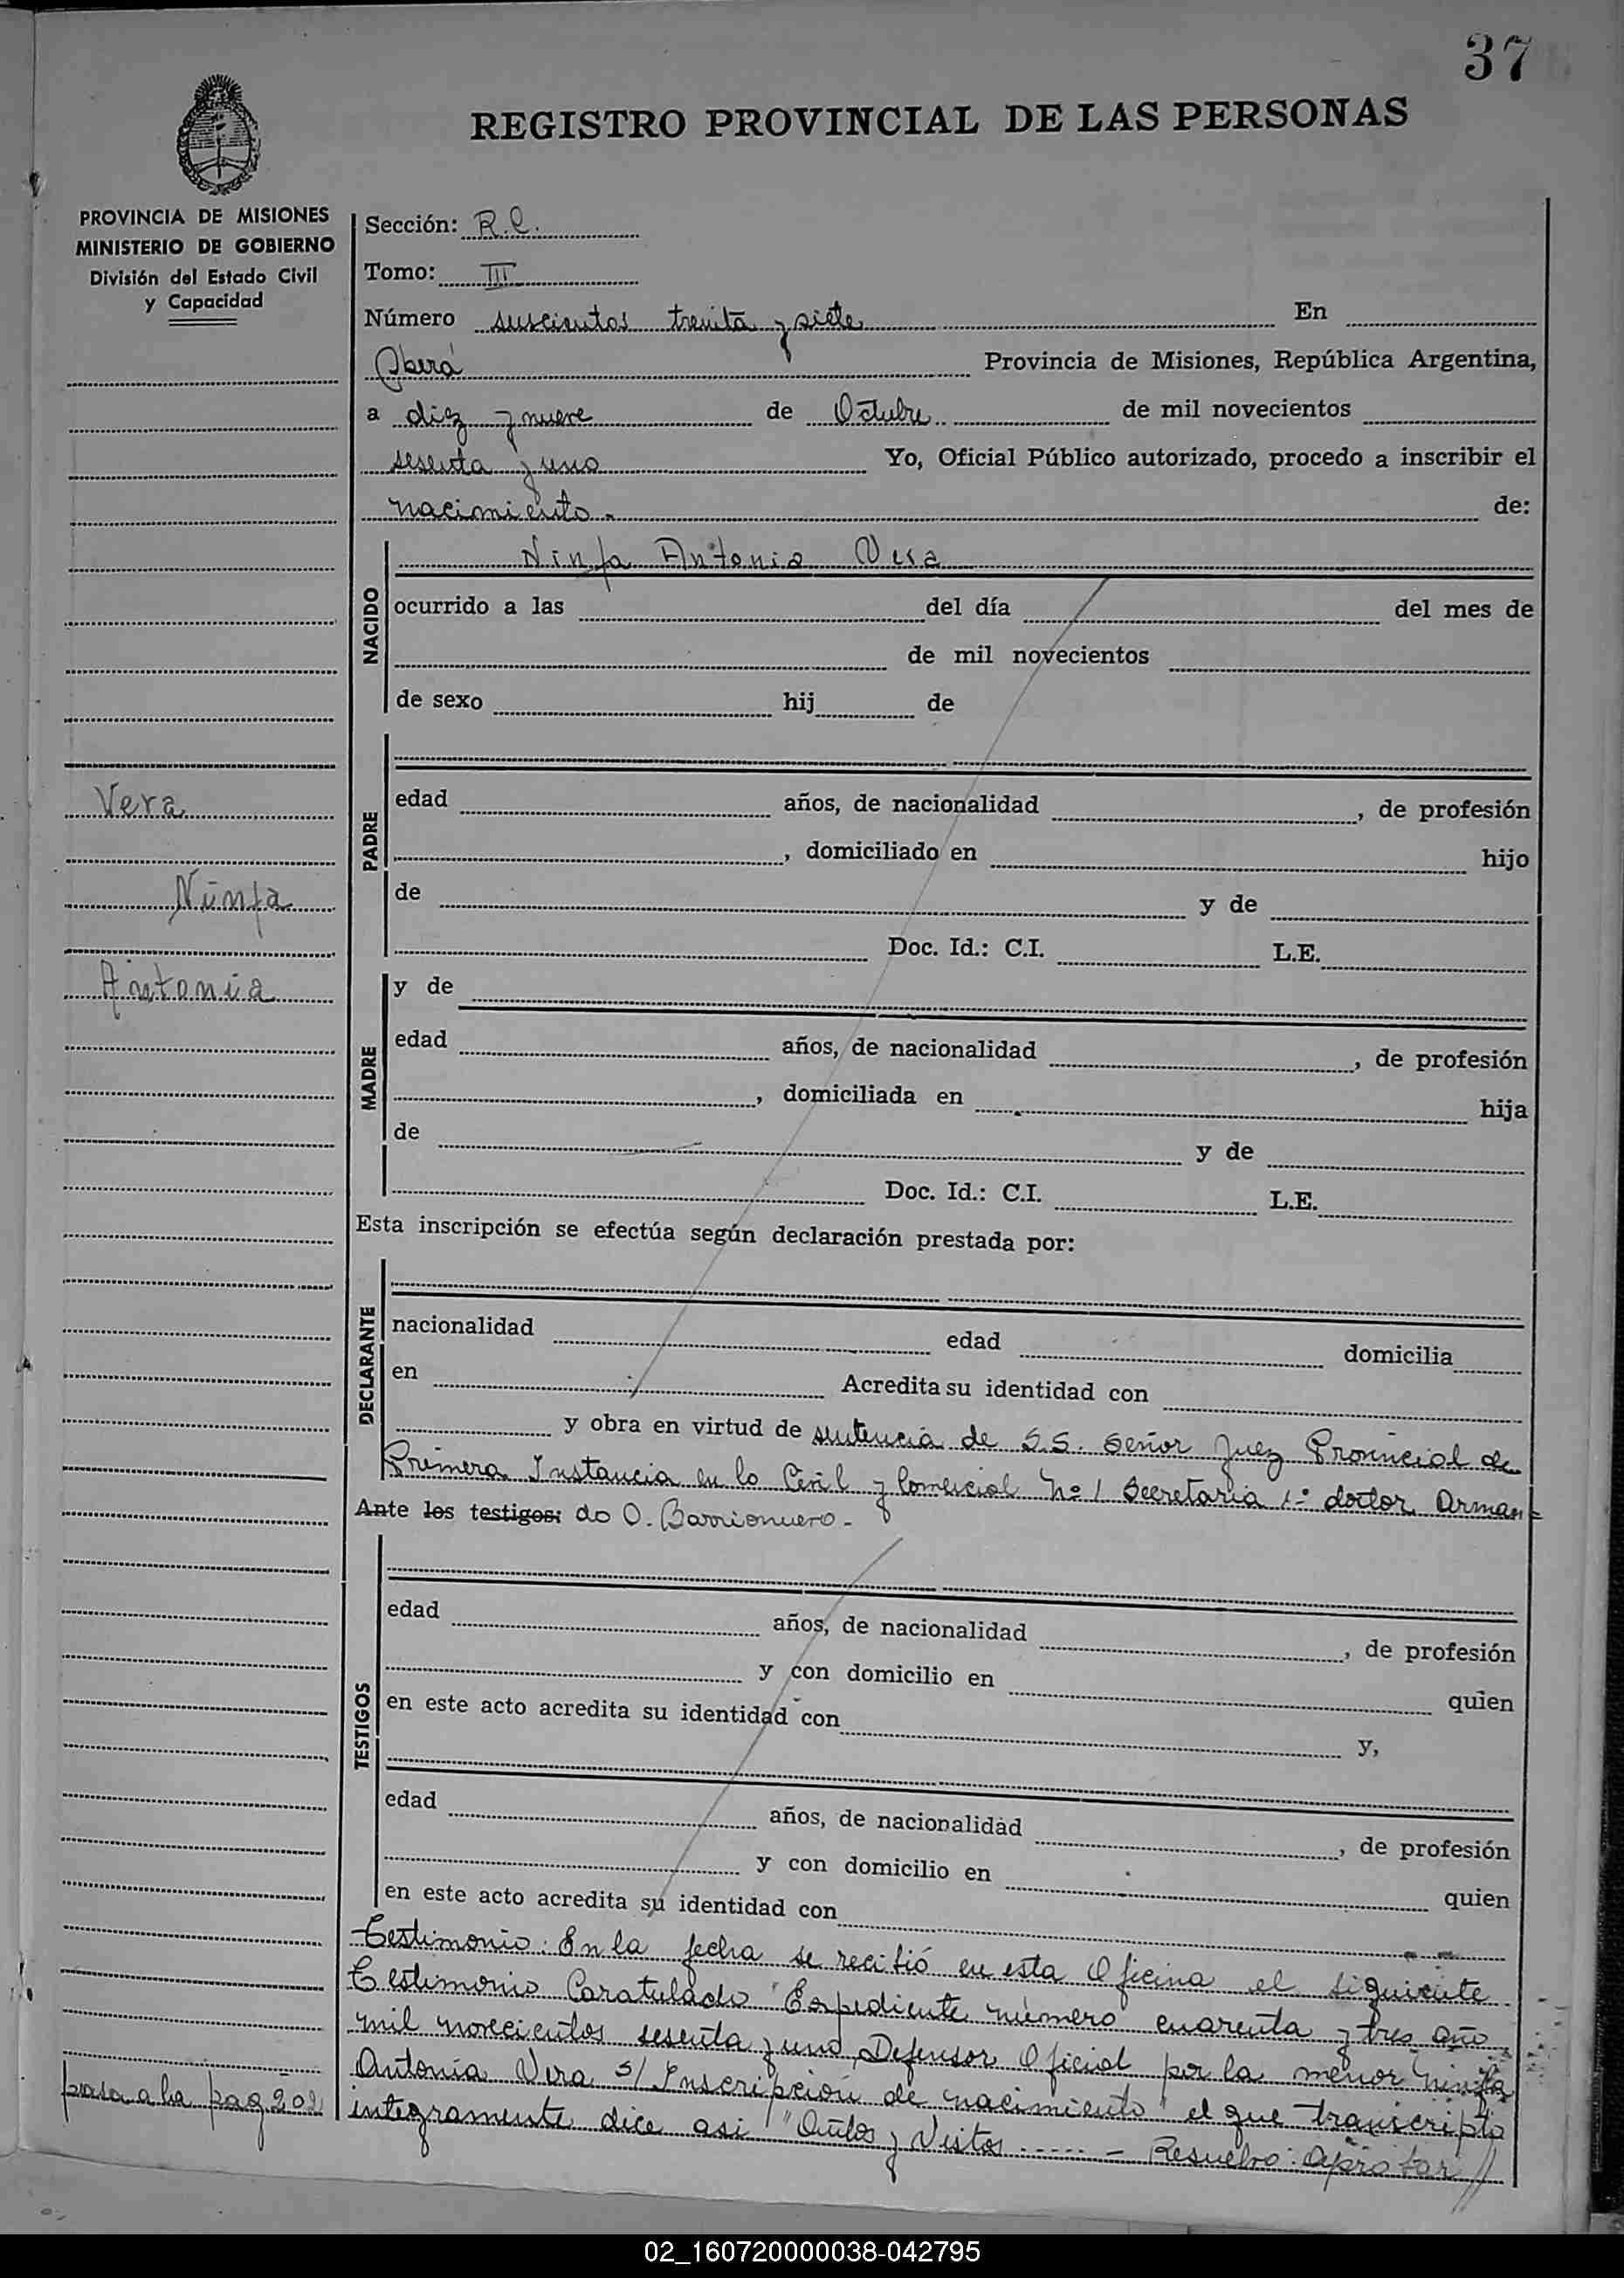 37
REGISTRO PROVINCIAL DE LAS PERSONAS
PROVINCIA DE MISIONES
MINISTERIO DE GOBIERNO
División del Estado Civil
y Capacidad
Sección: R.C.
Tomo: III
Número seiscientos treinta y siete En
Oberá Provincia de Misiones, República Argentina,
a diez y nueve de Octubre de mil novecientos
sesenta y uno Yo, Oficial Público autorizado, procedo a inscribir el
nacimiento.- de:
NACIDO
Ninfa Antonia Vera
ocurrido a las del día del mes de
de mil novecientos
de sexo hij de
Vera
Ninfa
Antonia
PADRE
edad años, de nacionalidad , de profesión
, domiciliado en hijo
de y de
Doc. Id.: C.I. L.E.
MADRE
y de
edad años, de nacionalidad , de profesión
, domiciliada en hija
de y de
Doc. Id.: C.I. L.E.
Esta inscripción se efectúa según declaración prestada por:
DECLARANTE
nacionalidad edad domicilia
en Acredita su identidad con
y obra en virtud de sentencia de S.S. Señor Juez Provincial de
Primera Instancia en lo Civil y Comercial Nº 1 Secretaria 1º doctor Arman=
Ante los testigos: do O. Barrionuevo.-
TESTIGOS
edad años, de nacionalidad , de profesión
y con domicilio en quien
en este acto acredita su identidad con y,
edad años, de nacionalidad , de profesión
y con domicilio en quien
en este acto acredita su identidad con
Testimonio: En la fecha se recibió en esta Oficina el siguiente
Testimonio Caratulado "Expediente número cuarenta y tres año
mil novecientos sesenta y uno, Defensor Oficial por la menor Ninfa
Antonia Vera s/ Inscripción de nacimiento" el que transcripto
integramente dice asi "Autos y Vistos ..... - Resuelvo: Aprobar //
pasa a la pag 202
02_160720000038-042795